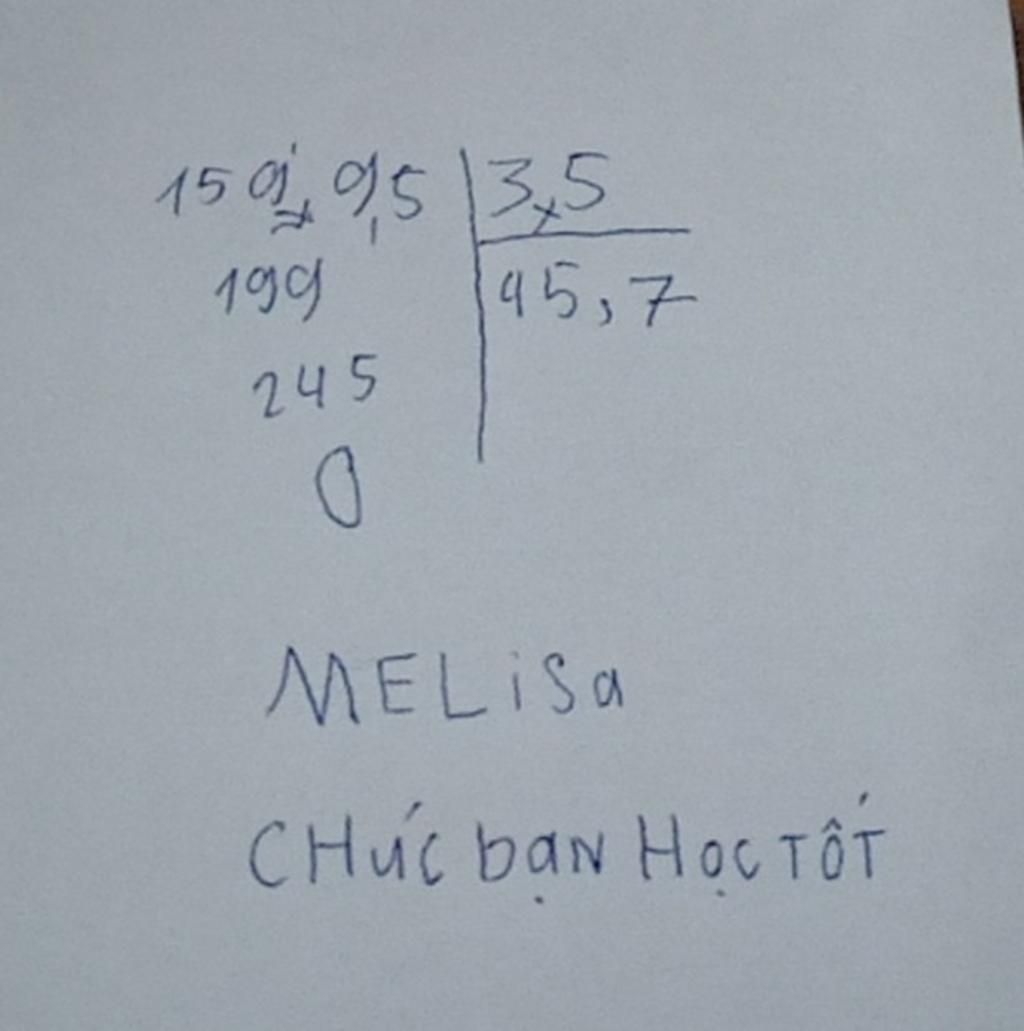 159,9,5 3,5
199 45,7
245
0
MELiSa
CHÚC bạN HỌC TỐT